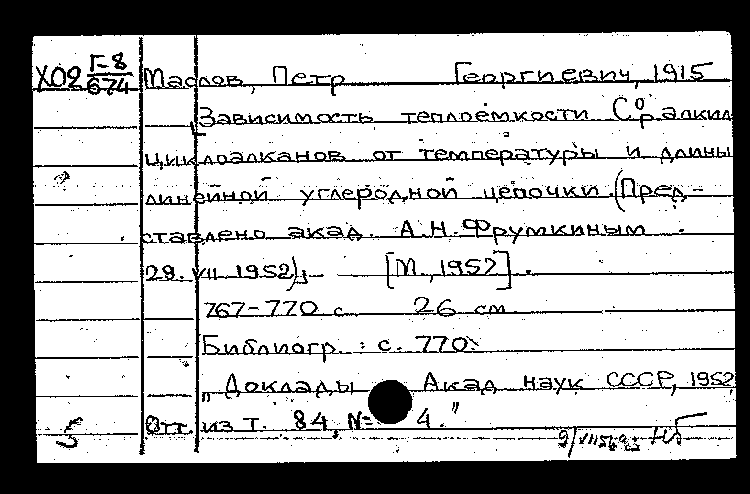 Х02 Г-8/674 Маслов, Петр Георгиевич, 1915
Зависимость теплоёмкости C⁰p алкил
циклоалканов от температуры и длины
линейной углеродной цепочки. (Пред-
ставлено акад. А.Н. Фрумкиным
28. VII 1952). [М., 1952].
767-770 с. 26 см.
Библиогр.: с. 770.
„Доклады Акад наук СССР, 1952
Отт. из т. 84, N= 4."
5
нб